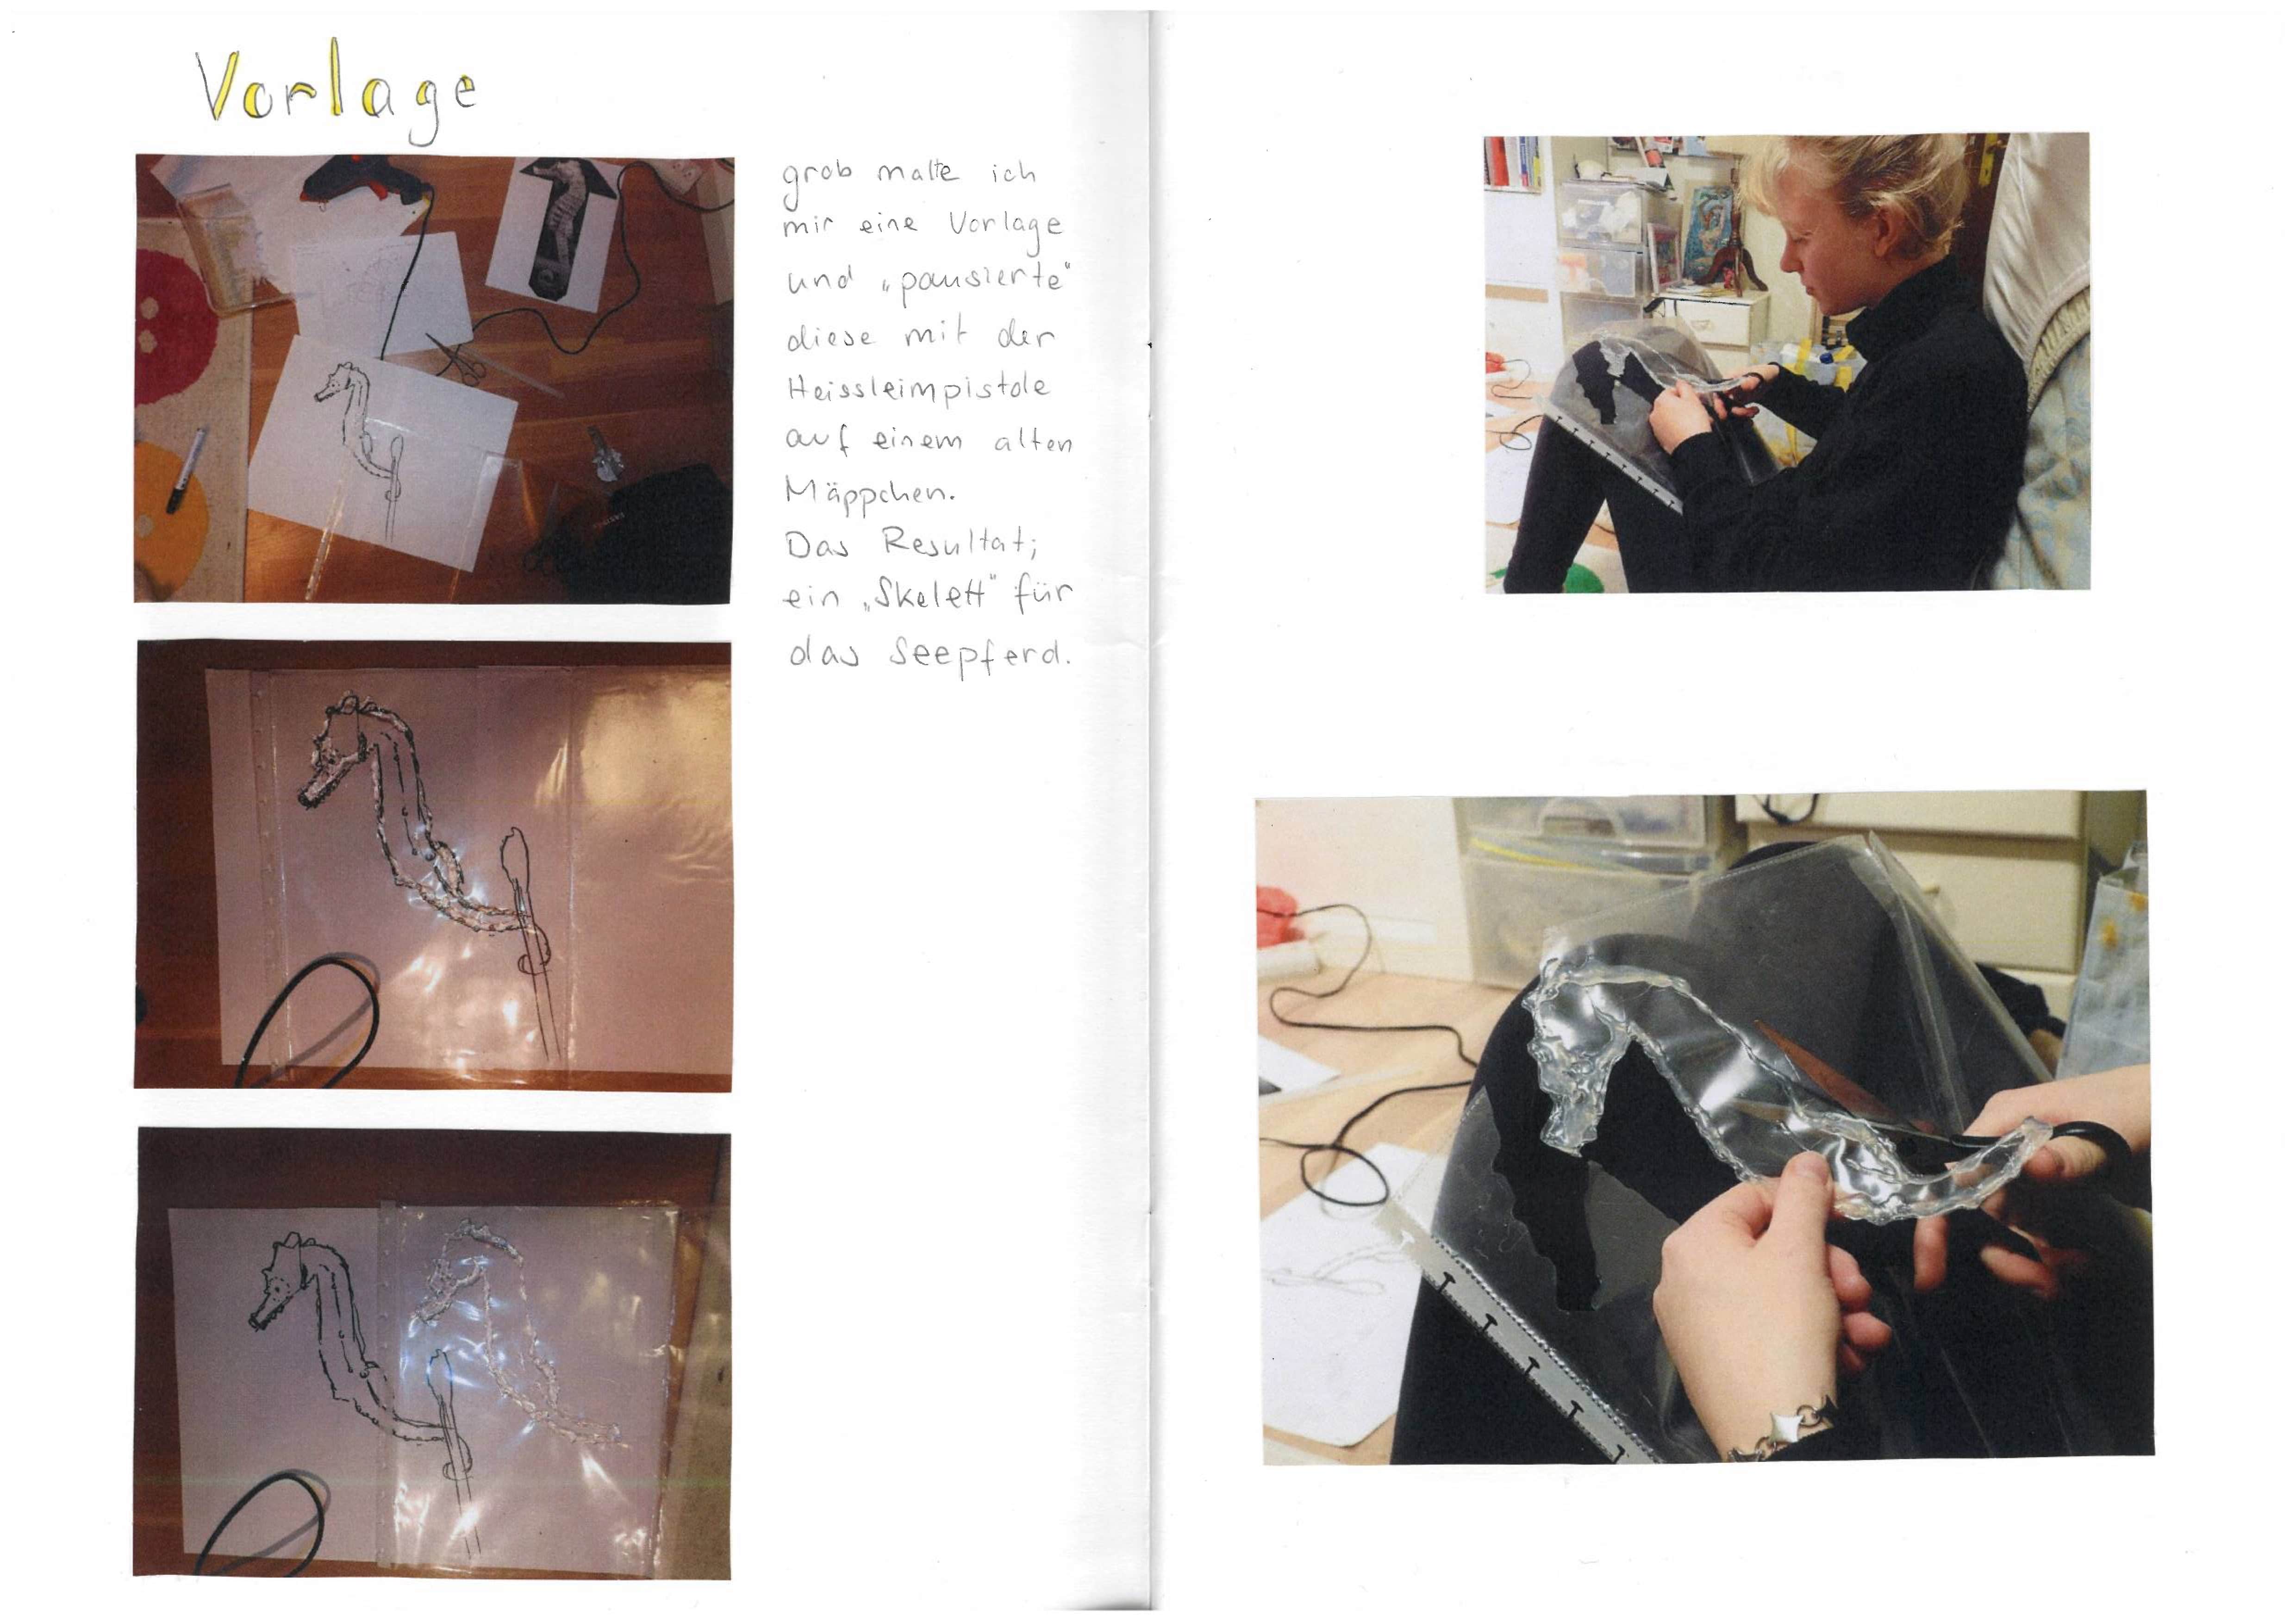 Vorlage
grob malte ich
mir eine Vorlage
und „pausierte“
diese mit der
Heissleimpistole
auf einem alten
Mäppchen.
Das Resultat;
ein „Skelett“ für
das Seepferd.